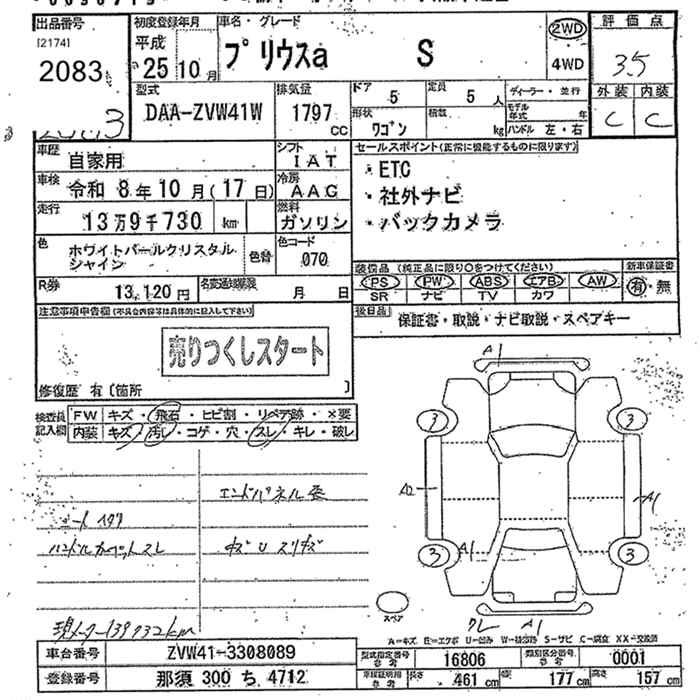 出品番号
[2174]
2083
初度登録年月
平成
25年10月
車名・グレード
プリウスa S
2WD
4WD
評価点
3.5
外装 内装
C C
型式
DAA-ZVW41W
排気量
1797
cc
ドア
5
定員
5 人
形状
ワゴン
積数
kg
ディーラー・並行
モデル年式 年
ハンドル 左・右
車歴
自家用
シフト
IAT
車検
令和 8年10月(17日)
冷房
AAC
走行
13万9千730 km
燃料
ガソリン
色
ホワイトパールクリスタル
シャイン
色替
色コード
070
R券
13,120円
名変通知期限
月 日
セールスポイント(正常に機能するものに限ります)
・ETC
・社外ナビ
・バックカメラ
装備品 (純正品に限り○をつけてください)
PS PW ABS エアB AW
SR ナビ TV カワ
新車保証書
有・無
後日品
保証書・取説・ナビ取説・スペアキー
注意事項申告欄(不具合内容等は具体的に記入して下さい)
売りつくしスタート
修復歴 有〔箇所 〕
検査員
記入欄
FW キズ・飛石・ヒビ割・リペア跡・×要
内装 キズ・汚レ・コゲ・穴・スレ・キレ・破レ
エンドパネル歪
ハンドルカペットスレ
キズUスリキズ
現メーター139732km
A1
3
3
A2
A1
3
3
A1
A1
スペア
A-キズ E-エクボ U-凹み W-補修跡 S-サビ C-腐食 XX-交換済
車台番号
ZVW41-3308089
登録番号
那須 300 ち 4712
型式指定番号
参考
16806
類別区分番号
参考
0001
車検証明用
参考
長さ
461 cm
幅
177 cm
高さ
157 cm